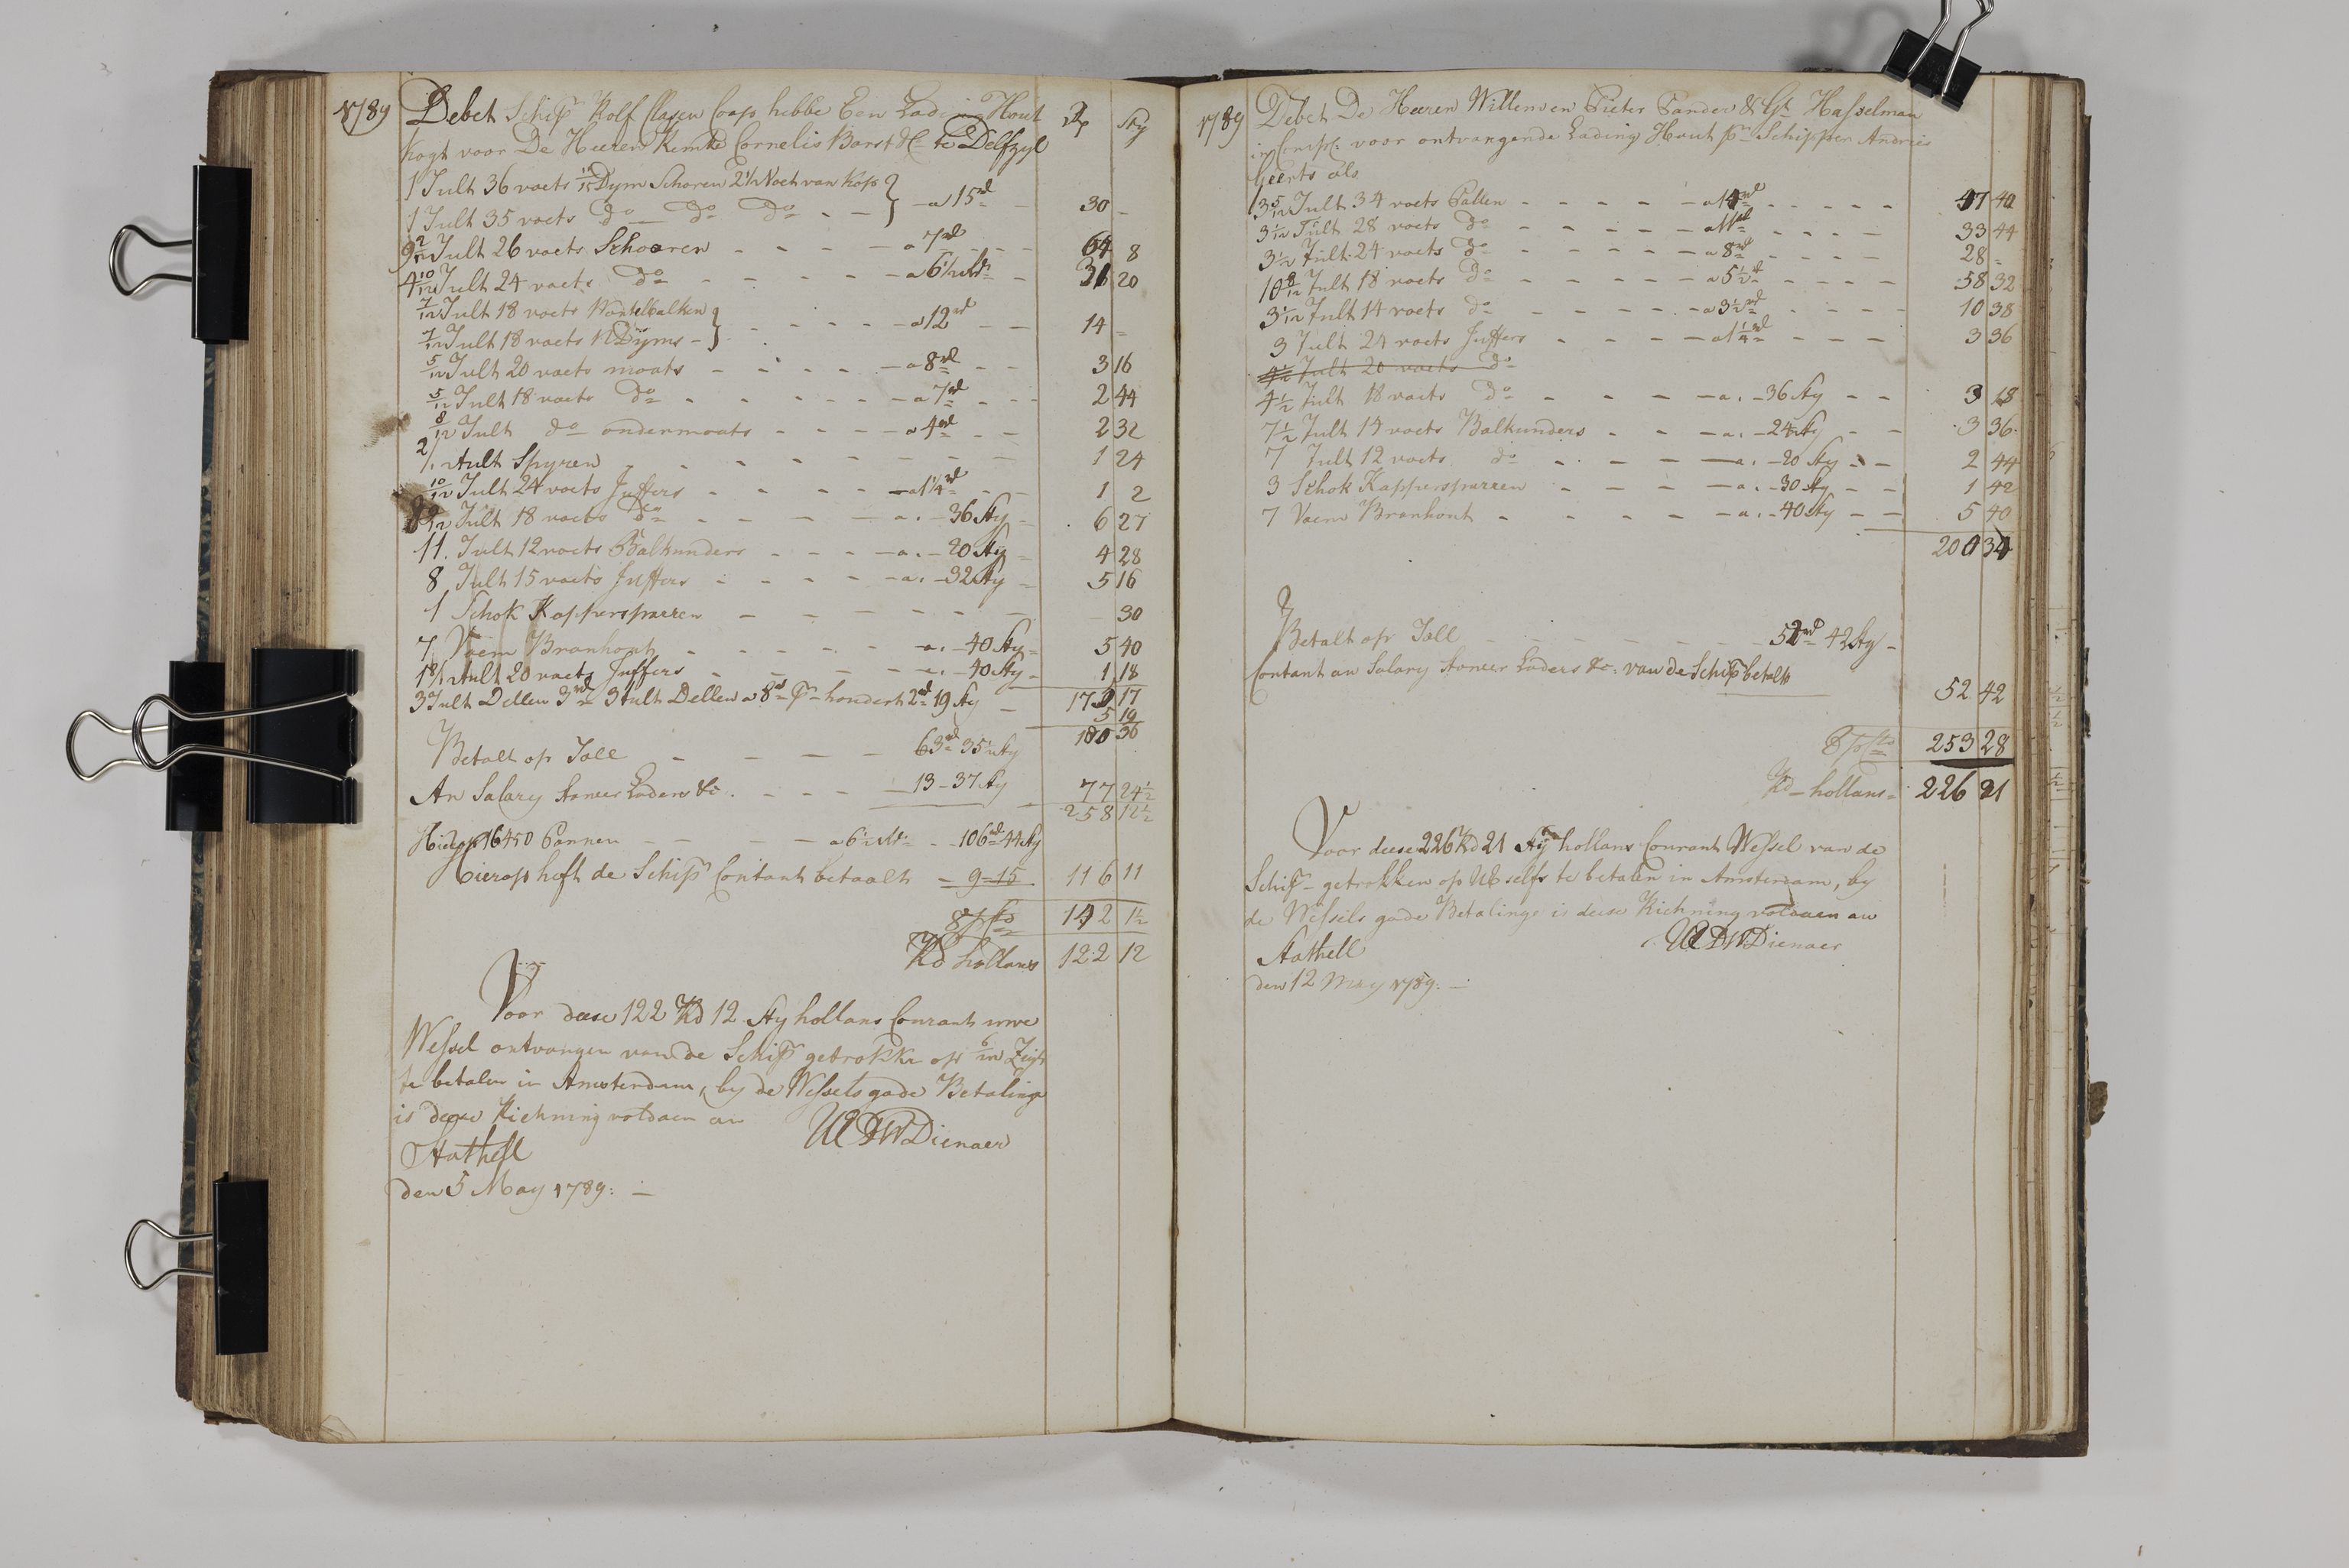 1789 Debet Schipr Rolf Clasen Coops hebbe Een Lading Hout Rd Sty
kogt voor De Heeren Remke Cornelis Barst &C te Delfzyl
1 Tult 36 voets Dym Schoren 2 1/2 Voet van Kop } a 15 rd 30 -
1 Tult 35 voets do do do
9 2/12 Tult 26 voets Schooren - a 7 rd 64 8
4 10/12 Tult 24 voets do - a 6 1/2 rd 31 20
7/12 Tult 18 voets Kantelbalken } a 12 rd 14 -
7/12 Tult 18 voets 12 Dyms
5/12 Tult 20 voets moats - a 8 rd 3 16
5/12 Tult 18 voets do - a 7 rd 2 44
8/12 Tult do ondermoats - a 4 rd 2 32
Tult Spyren - 1 24
10/12 Tult 24 voets Juffers - a 1 1/4 rd 1 2
Tult 18 voets do - a. - 36 Sty 6 27
11. Tult 12 voets Balkunders - a. - 20 Sty 4 28
8 Tult 15 voets Juffers - a. - 32 Sty 5 16
1 Schok Kappersparren - 30
7 Vaem Branhout - a. - 40 Sty 5 40
Tult 20 voets Juffers - a. - 40 Sty 1 18
3 Tult Dellen 3 rd 3 Tult Dellen a 8 rd pr hondert 2 rd 19 Sty 17 17
5 19
180 36
Betalt op Toll - 63 rd 35 1/2 Sty
An Salary Loders &c. - 13 - 37 Sty 77 24 1/2
258 12 1/2
Hierop 16450 Pannen - a 6 1/2 rd - 106 rd 44 Sty
Hierop heft de Schipr Contant betaalt - 9 = 15 116 11
8 pCto 142 1 1/2
Rd hollans 122 12
Voor deese 122 Rd 12 Sty hollans Courant
Wessel ontvangen van de Schipr getrokke op Zigt
te betalen in Amsterdam, by de Wessels gode Betalinge
is deese Richning voldaen an
UE DW Dienaer
Stathell
den 5 May 1789: —
1789 Debet De Heeren Willem en Pieter Sander & Gt Hasselman
in Comp: voor ontvangende Lading Hout pr Schipper Andries
Geerts als
3 5/12 Tult 34 voets Ballen - a 14 rd 47 40
3 1/12 Tult 28 voets do - a 11 rd 33 44
3 1/2 Tult 24 voets do - a 8 rd 28 -
10 8/12 Tult 18 voets do - a 5 1/2 rd 58 32
3 1/12 Tult 14 voets do - a 3 1/2 rd 10 38
3 Tult 24 voets Juffers - a 1 1/4 rd 3 36
4 1/2 Tult 20 voets do
4 1/2 Tult 18 voets do - a. - 36 Sty 3 18
7 1/2 Tult 14 voets Balkunders - a. - 24 Sty 3 36
7 Tult 12 voets do - a. - 20 Sty 2 44
3 Schok Kappersparren - a. - 30 Sty 1 42
7 Vaem Branhout - a. - 40 Sty 5 40
200 34
Betalt op Toll - 52 rd 42 Sty -
Contant an Salary Loders &c: van de Schipr betalt
52 42
8 pCto 253 28
Rd hollans = 226 21
Voor deese 226 Rd 21 Sty hollans Courant Wessel van de
Schipr getrokken op UE selfs te betalen in Amsterdam, by
de Wessels gode Betalinge is deese Richning voldaen an
UE DW Dienaer
Stathell
den 12 May 1789: —